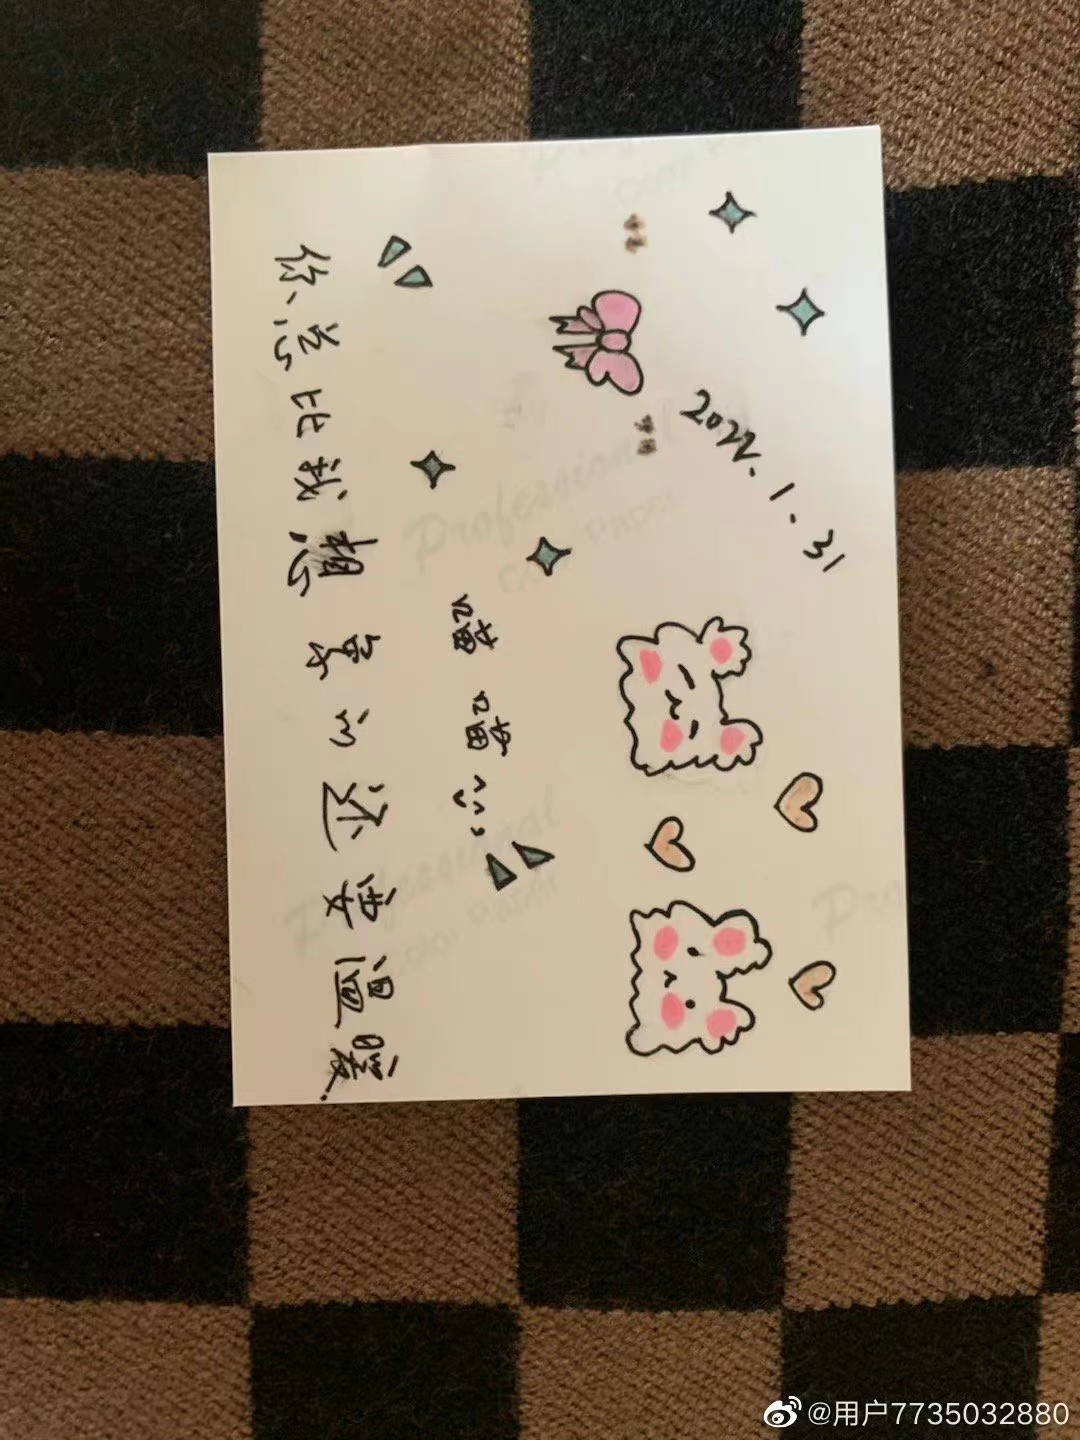 2022.1.31
Professional
Color Paper
喵喵
Professional
Color Paper
你总比我想象的还要温暖.
@用户7735032880